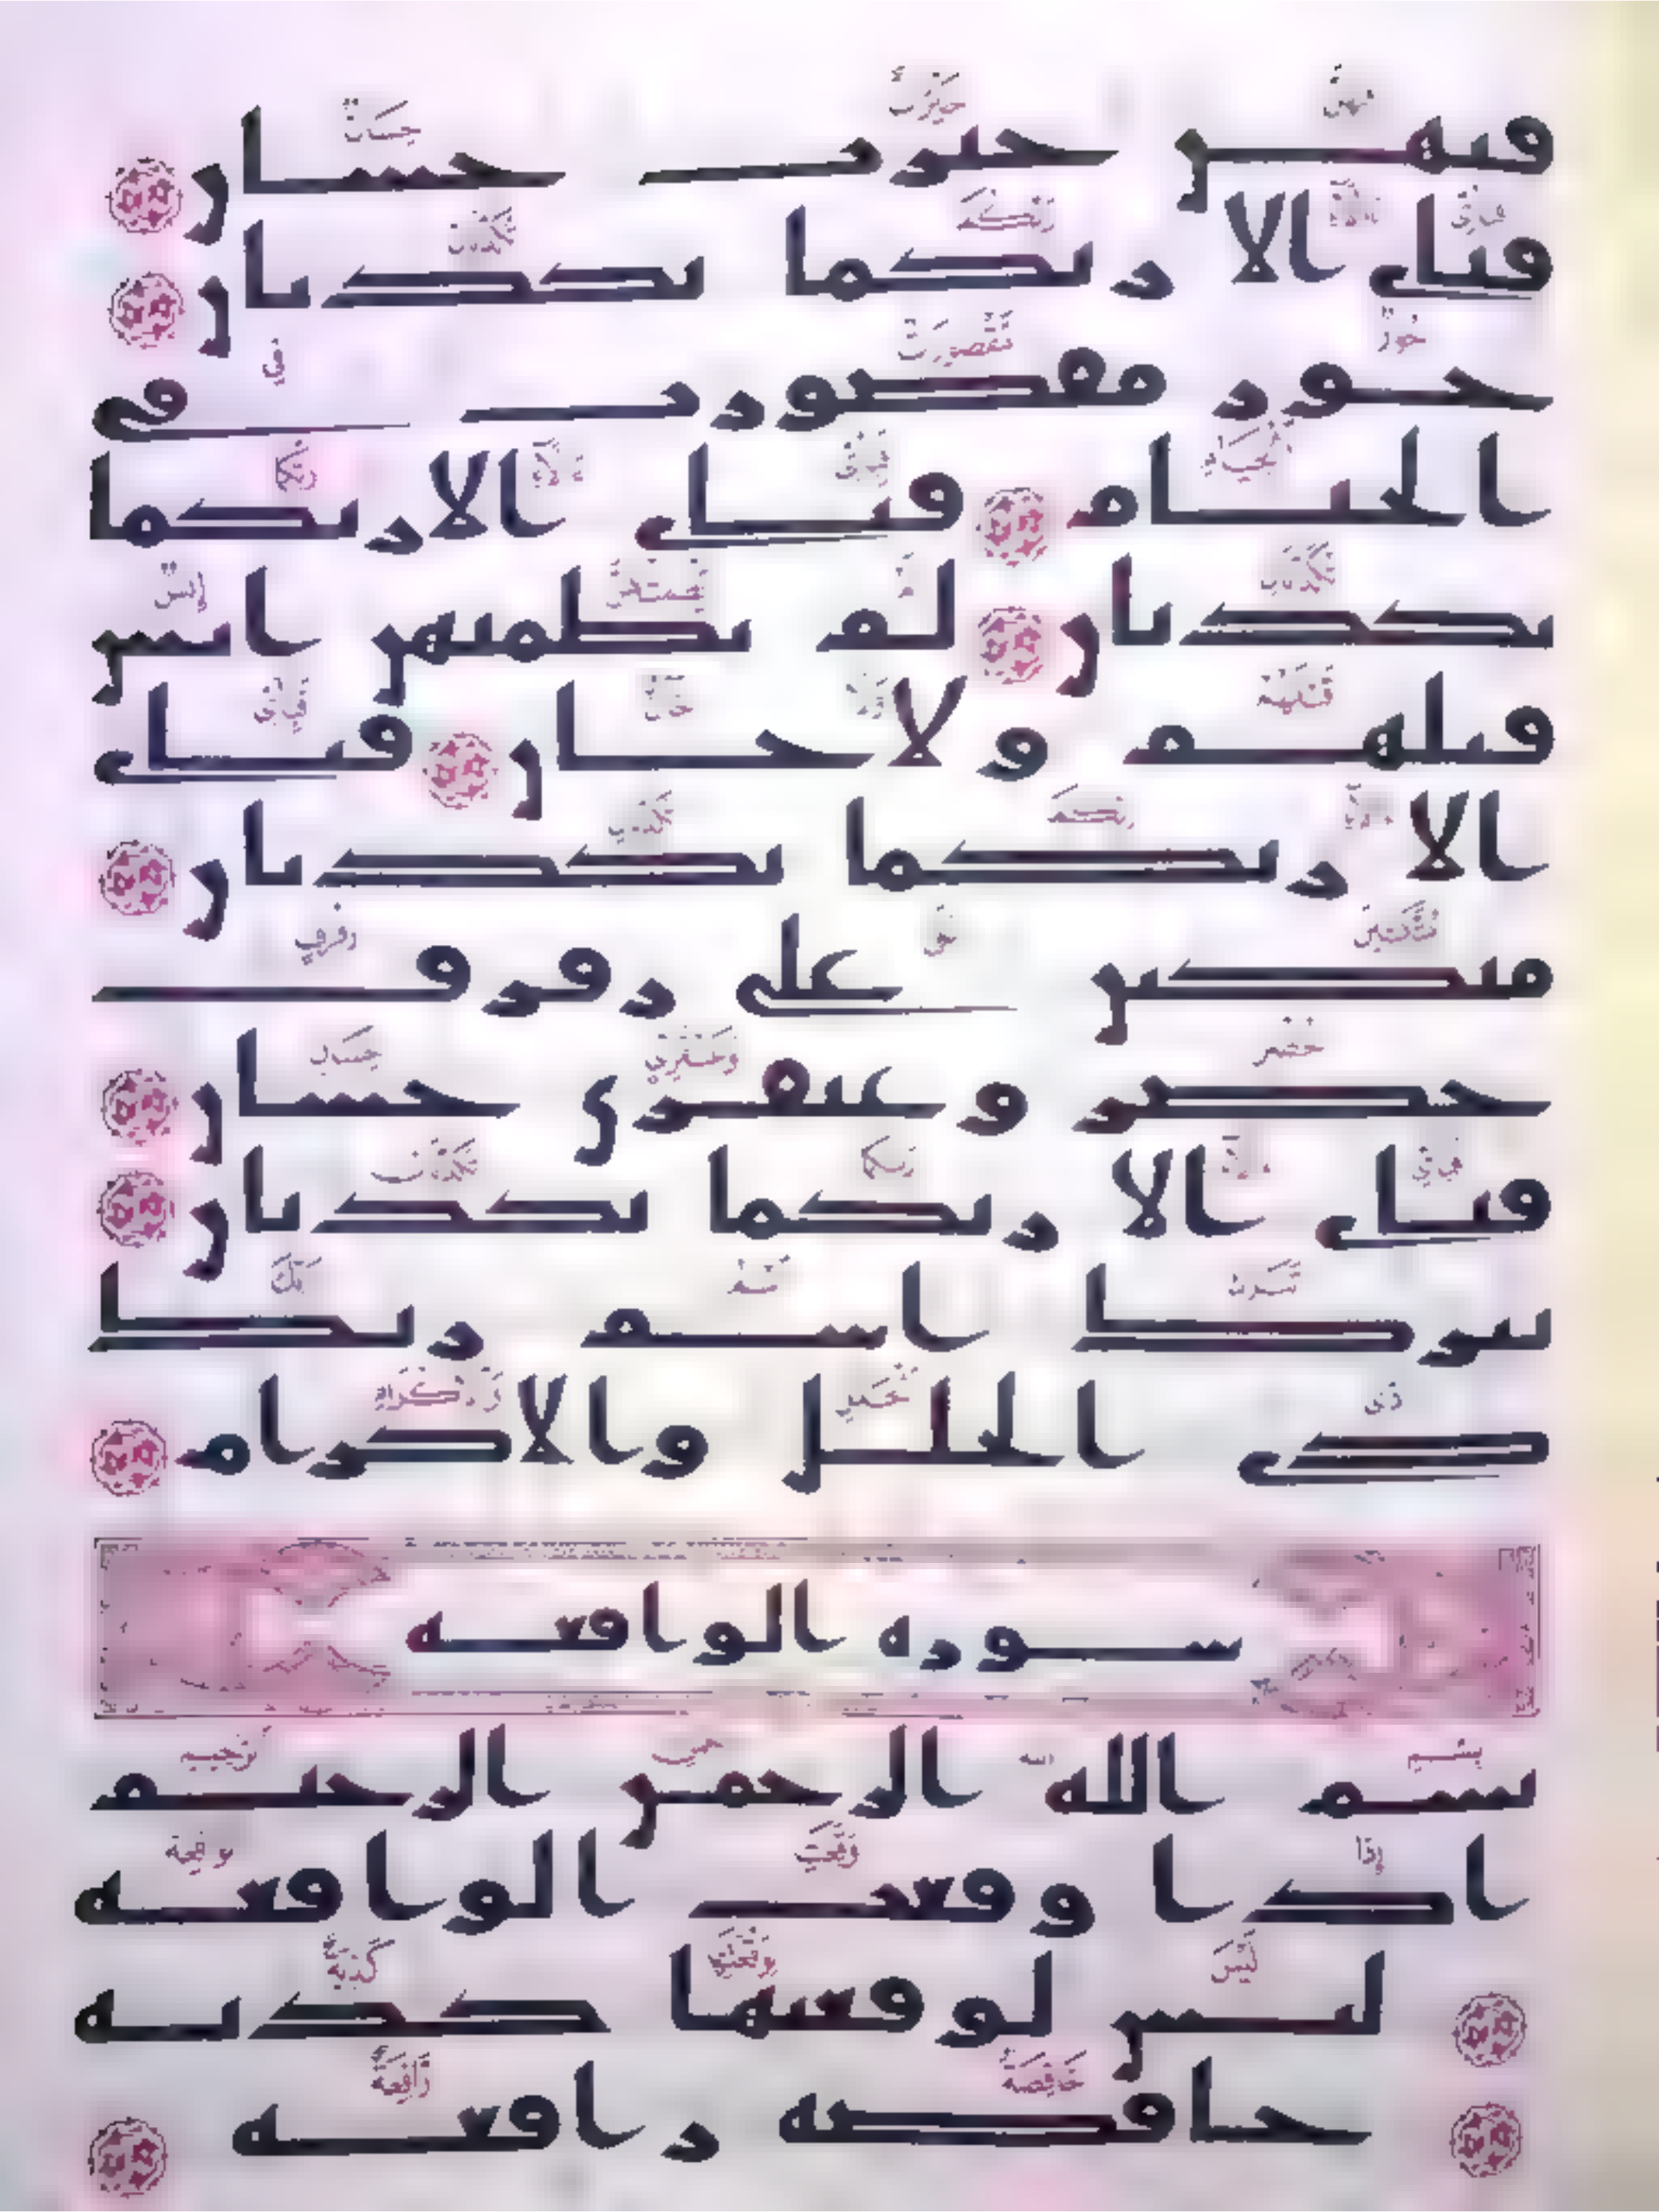 فيهن خيرت حسان
فبأي الا ربكما تكذبان
حور مقصورت في
الخيام فبأي الا ربكما
تكذبان لم يطمثهن انس
قبلهم ولا جان فبأي
الا ربكما تكذبان
متكين على رفرف
خضر وعبقري حسان
فبأي الا ربكما تكذبان
تبرك اسم ربك
ذي الجلل والاكرام
سورة الواقعة
بسم الله الرحمن الرحيم
اذا وقعت الواقعة
ليس لوقعتها كذبة
خافضة رافعة